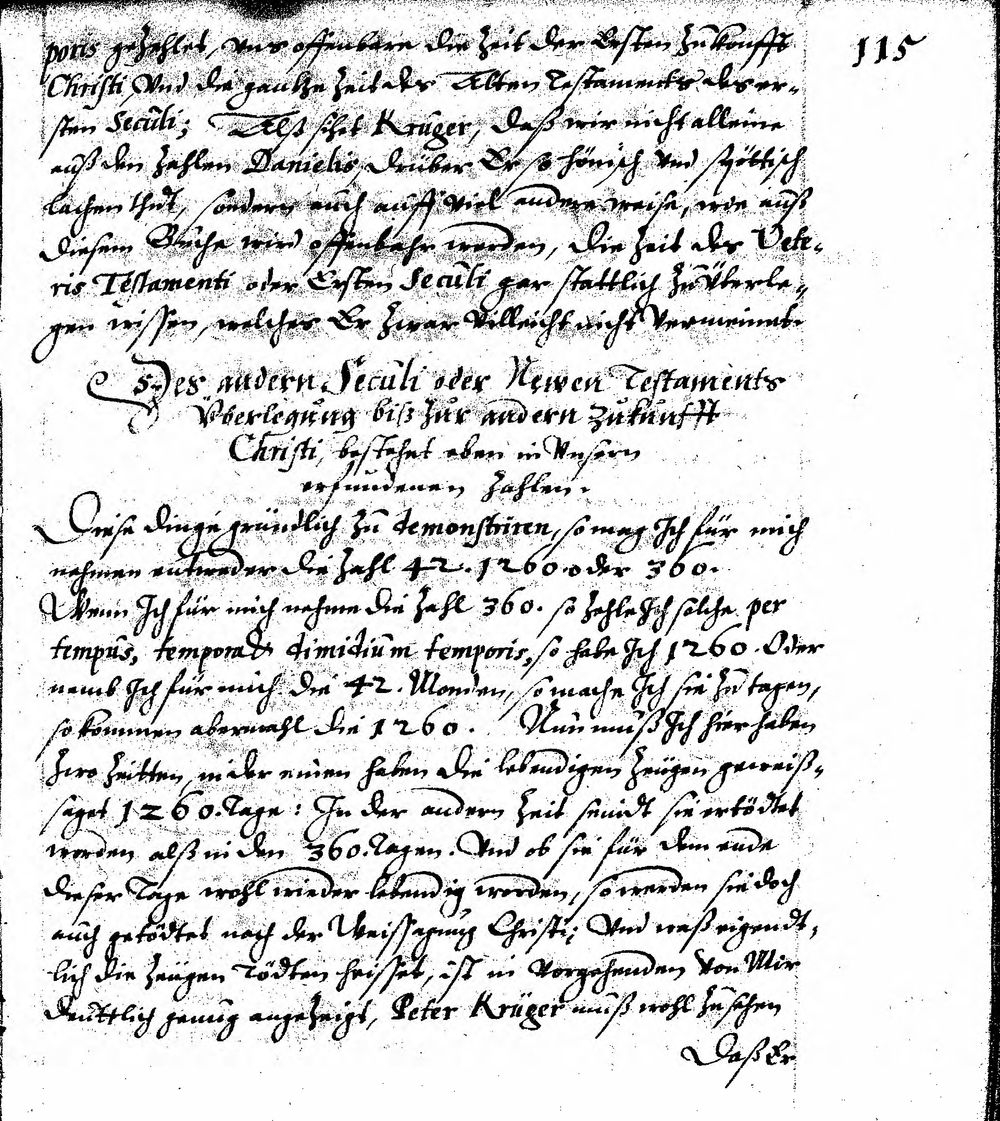 115
poris gezehlet, uns offenbare die Zeit der Ersten Zukunfft
Christi, Und die gantze Zeit des Alten Testaments des er-
sten Seculi; Alß sihet Krüger, daß wir nicht alleine
auß den Zahlen Danielis, drüber Er so hönisch und spöttisch
lachen thut, sondern auch auff viel andere weise, wie auß
diesem Buche wird offenbahr werden, die Zeit des Vete-
ris Testamenti oder Ersten Seculi gar stattlich zu überle-
gen wissen, welches Er zwar villeicht nicht vermeinet.
Des andern Seculi oder Newen Testaments
Überlegung biß zur andern Zukunfft
Christi, bestehet eben in Unsern
erfundenen Zahlen.
Diese dinge gründlich zu demonstriren, so mag Ich für mich
nehmen entweder die Zahl 42. 1260. oder 360.
Wenn Ich für mich nehme die Zahl 360. so zehle Ich solche per
tempus, tempora & dimidium temporis, so habe Ich 1260. Oder
nemb Ich für mich die 42. Monden, so mache Ich sie zu tagen,
so kommen abermahl die 1260. Nun muß Ich hier haben
zwo Zeitten, in der einen haben die lebendigen Zeugen geweiß-
saget 1260. Tage: In der andern Zeit seindt sie ertödtet
worden alß in den 360. Tagen. Und ob sie für dem ende
dieser Tage wohl wieder lebendig worden, so werden sie doch
auch getödtet nach der Weissagung Christi; Und waß eigendt-
lich die Zeugen Tödten heisset, ist in Vorgehenden von Mir
deuttlich genug angezeigt, Peter Krüger muß wohl zusehen
Daß Er